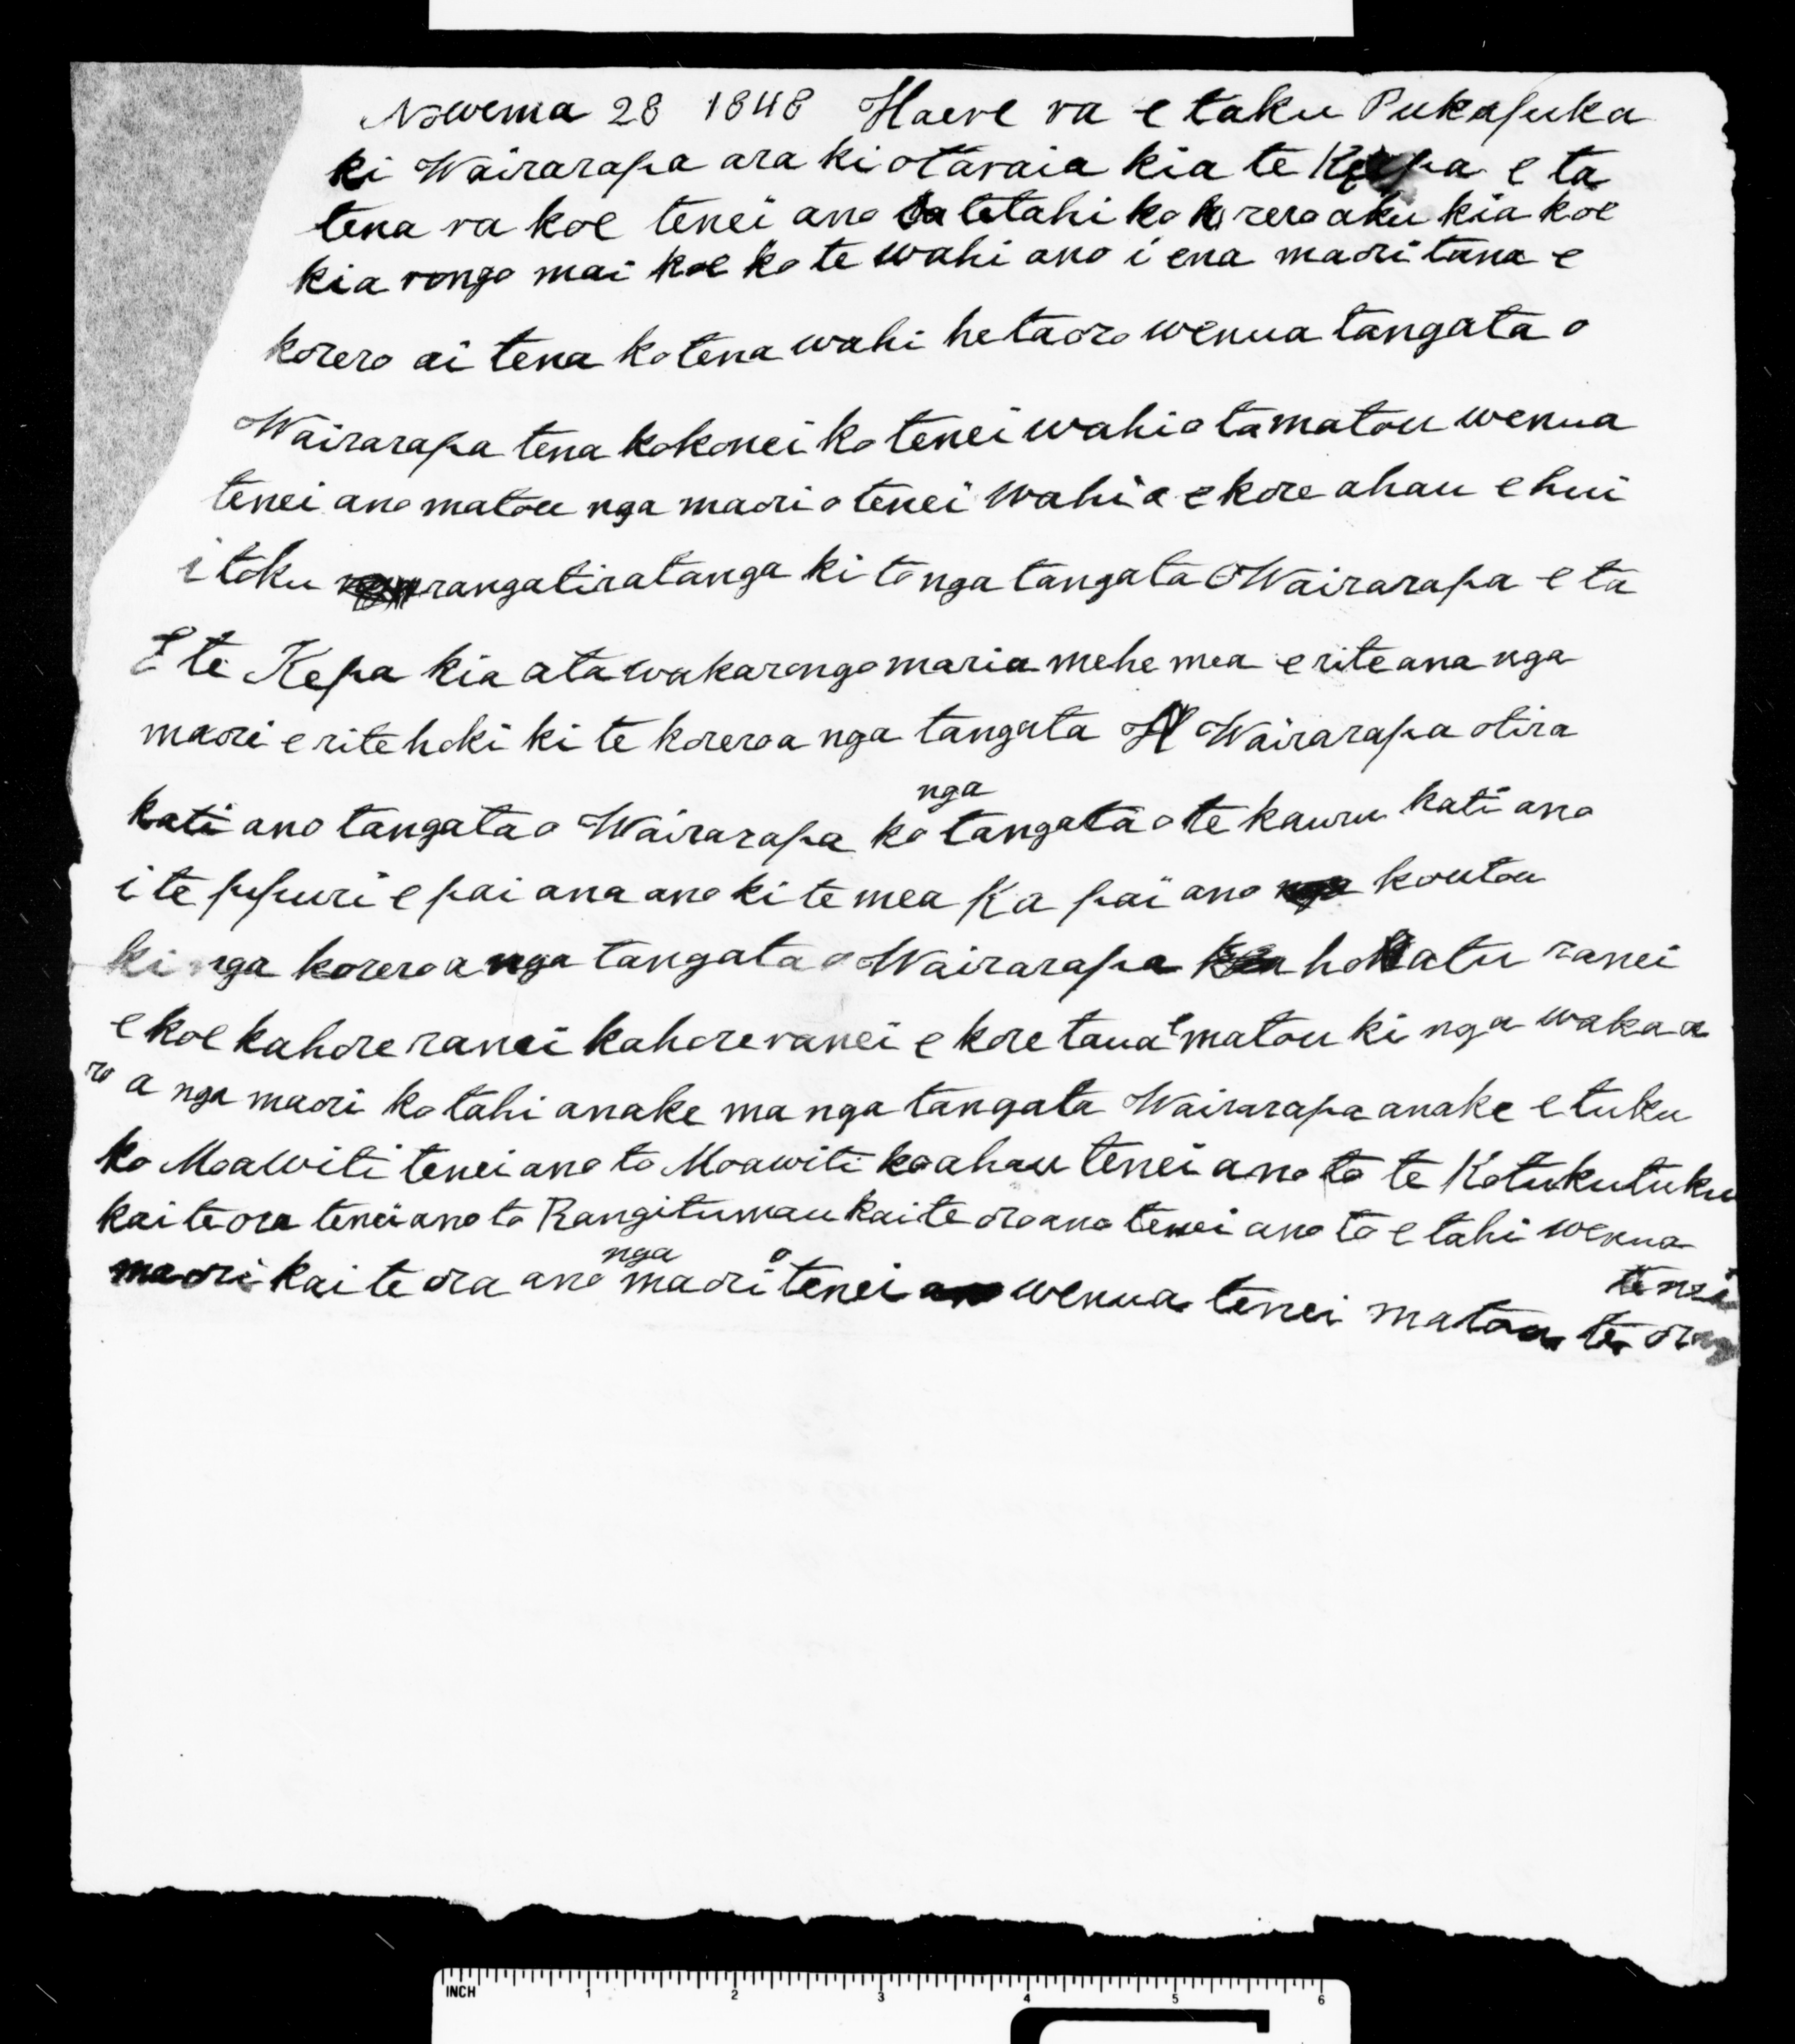 Nowema 28 1848 Haere ra e taku Pukapuka
ki Wairarapa ara ki otaraia kia te Kepa e ta
tena ra koe tenei ano tetahi ko korero aku kia koe
kia rongo mai koe ko te wahi ano i ena maori tana e
korero ai tena ko tena wahi he taoro wenua tangata o
Wairarapa tena kokonei ko tenei wahi o ta matou wenua
tenei ano matou nga maori o tenei wahi a e kore ahau e hui
i toku rangatiratanga ki to nga tangata O Wairarapa e ta
E te Kepa kia ata wakarongo maria mehe mea e rite ana nga
maori e rite hoki ki te korero a nga tangata Wairarapa otira
kati ano tangata o Wairarapa ko nga tangata o te kauru kati ano
i te pupuri e pai ana ano ki te mea Ka pai ano koutou
ki nga korero a nga tangata o Wairarapa hokatu ranei
e koe kahore ranei kahore ranei e kore taua e matou ki nga wakaa
ro a nga maori ko tahi anake ma nga tangata Wairarapa anake e tuku
ko Moawiti tenei ano to Moawiti ko ahau tenei ano to te Kotukutuku
kai te ora tenei ano to Rangitumau kai te ora ano tenei ano to e tahi wenua
maori kai te ora ano nga maori o tenei wenua tenei matou te
tenei
INCH 1 2 3 4 5 6